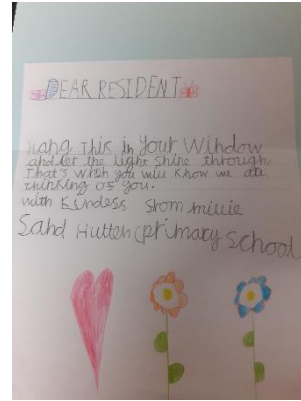 DEAR RESIDENT
Hang This in Your Window
and let the light shine through.
That's when you will know we are
thinking of you.
with Kindess from millie
Sand Hutton primary School